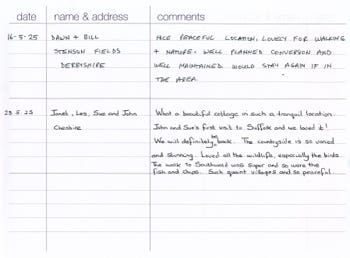 date name & address comments
16-5-25 DAWN + BILL NICE PEACEFUL LOCATION, LOVELY FOR WALKING
STENSON FIELDS + NATURE. WELL PLANNED CONVERSION AND
DERBYSHIRE WELL MAINTAINED. WOULD STAY AGAIN IF IN
THE AREA.
23.5.25 Janet, Les, Sue and John What a beautiful cottage in such a tranquil location.
Cheshire John and Sue's first visit to Suffolk and we loved it!
We will definitely be back. The countryside is so varied
and stunning. Loved all the wildlife, especially the birds.
The walk to Southwold was super and so were the
fish and chips. Such quaint villages and so peaceful.